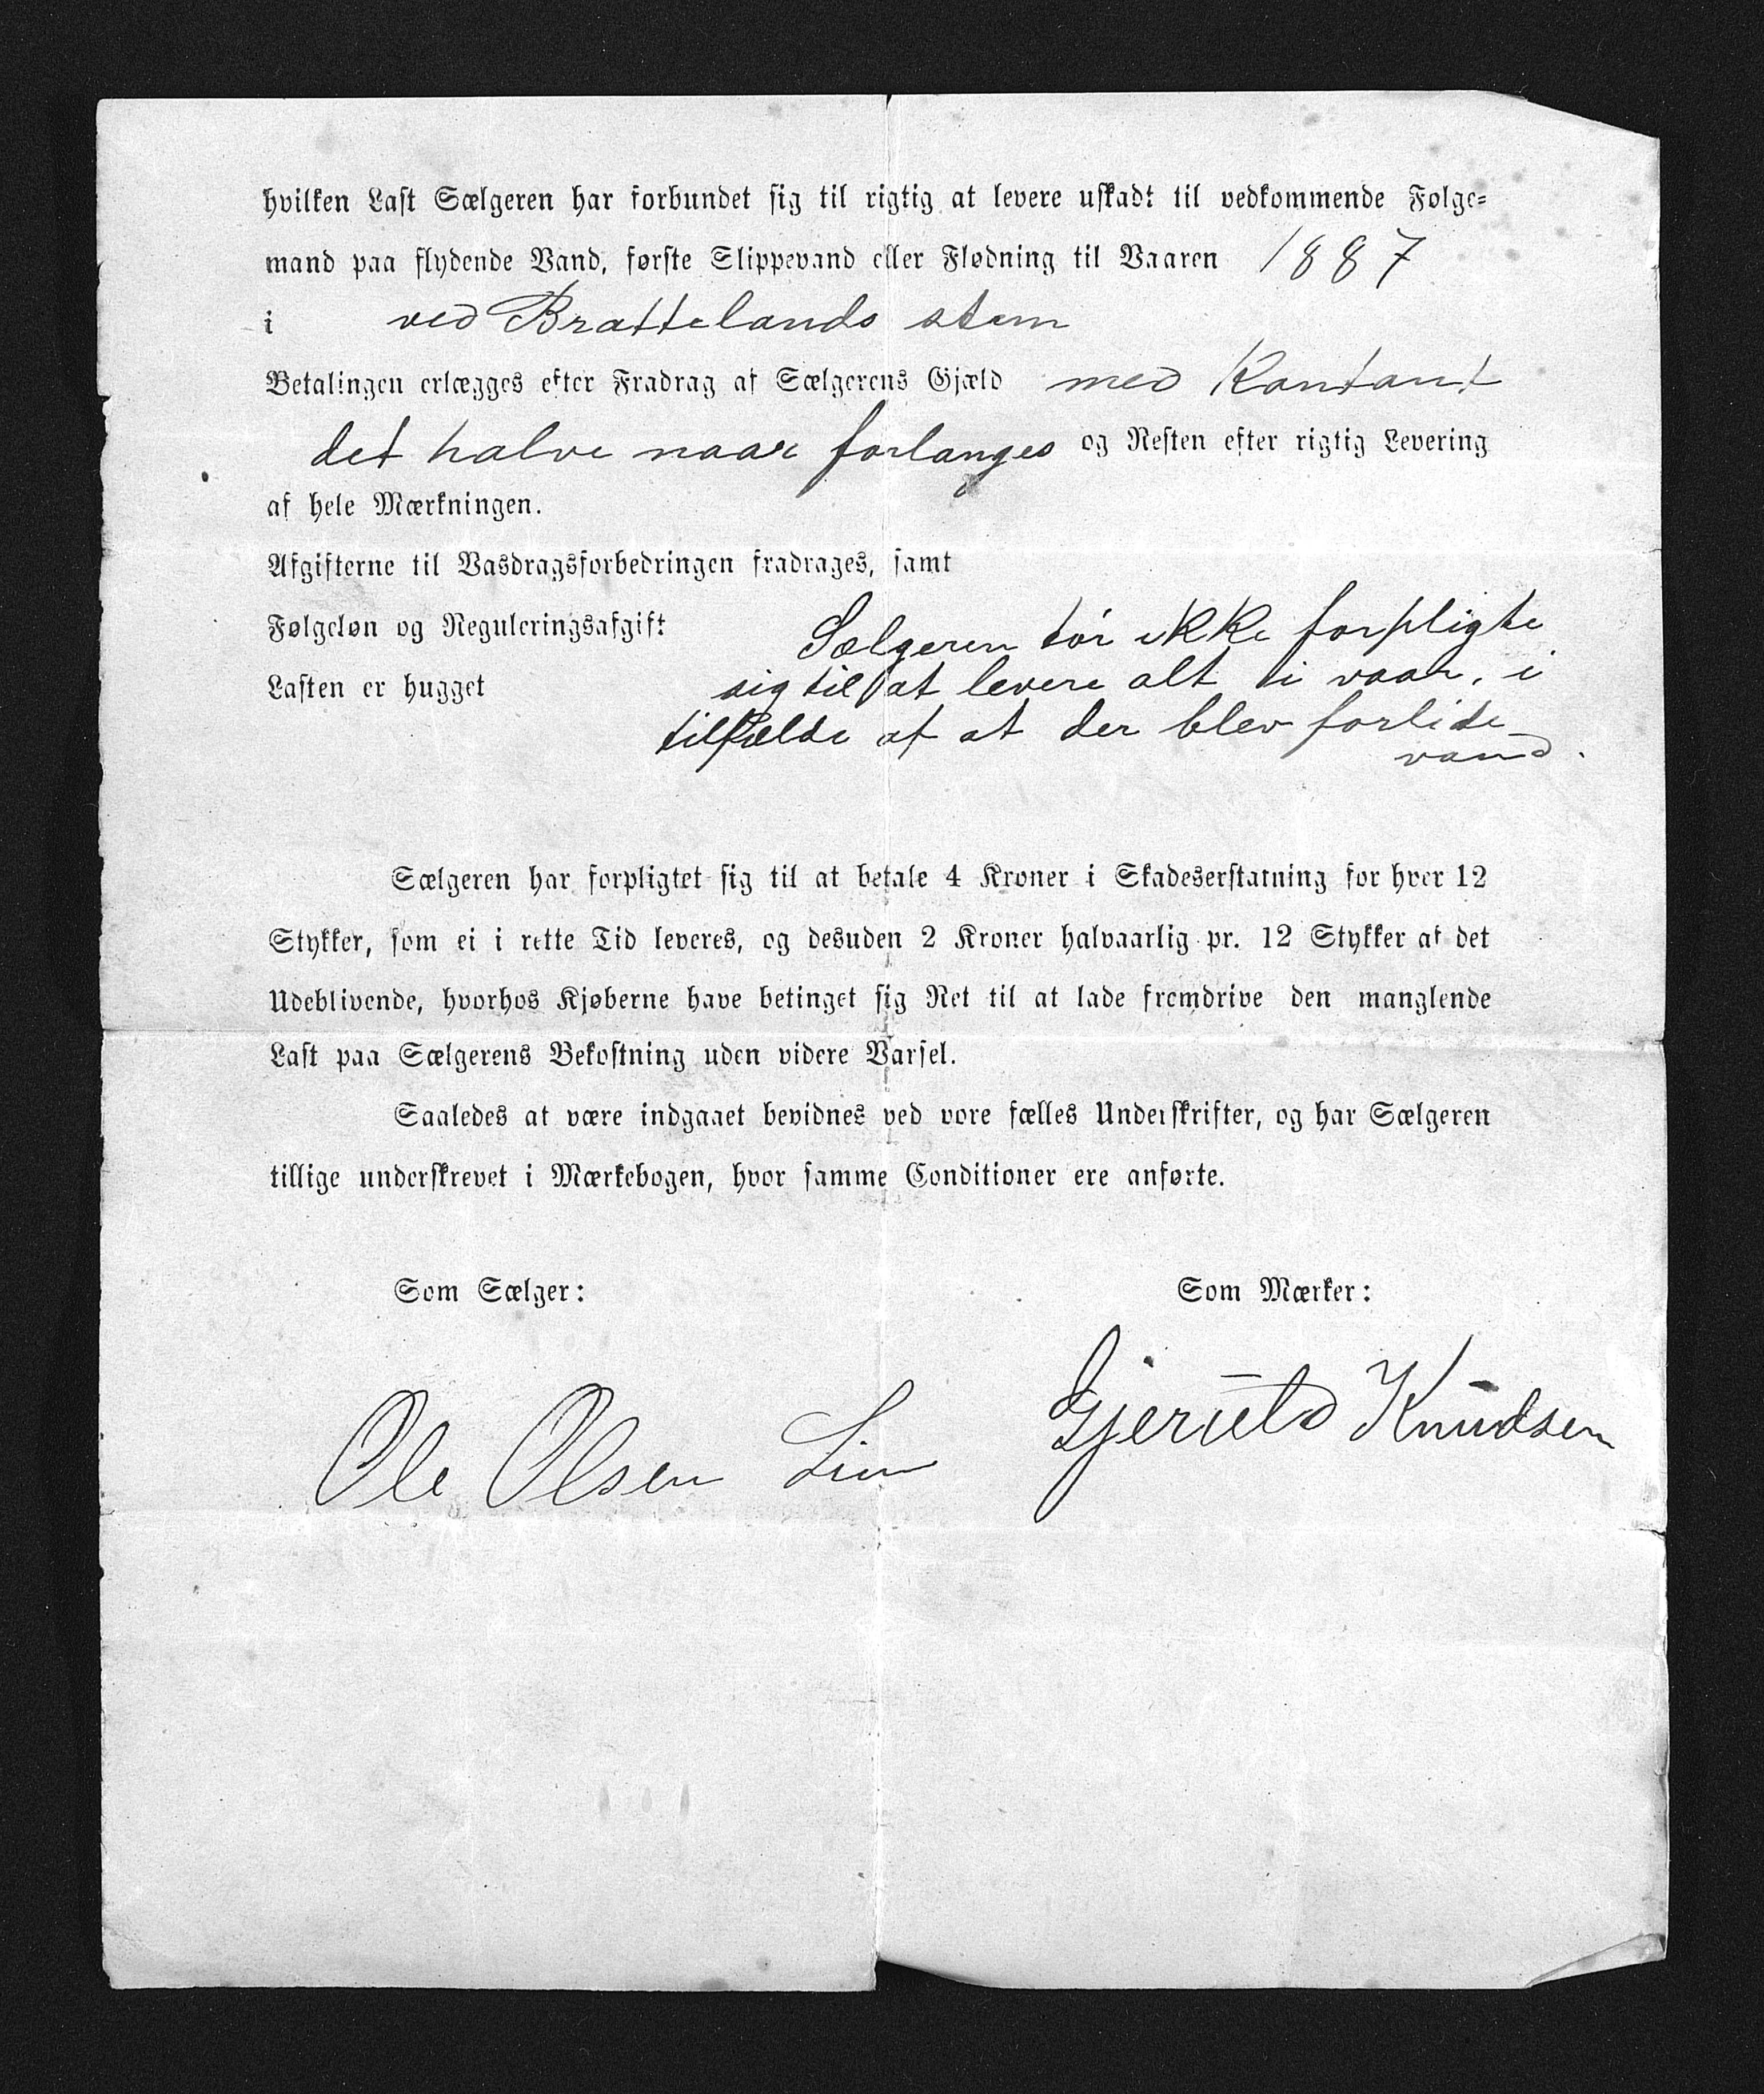 hvilken Last Sælgeren har forbundet sig til rigtig at levere uskadt til vedkommende Følge-
mand paa flydende Vand, første Slippevand eller Flødning til Vaaren 1887
i ved Brattelands stem
Betalingen erlægges efter Fradrag af Sælgerens Gjæld med Kontant
det halve naar forlanges og Resten efter rigtig Levering
af hele Mærkningen.
Afgifterne til Vasdragsforbedringen fradrages, samt
Følgeløn og Reguleringsafgift
Sælgeren tør ikke forpligte
Lasten er hugget
sig til at levere alt i vaar, i
tilfælde af at der blev forlide
vand.
Sælgeren har forpligtet sig til at betale 4 Kroner i Skadeserstatning for hver 12
Stykker, som ei i rette Tid leveres, og desuden 2 Kroner halvaarlig pr. 12 Stykker af det
Udeblivende, hvorhos Kjøberne have betinget sig Ret til at lade fremdrive den manglende
Last paa Sælgerens Bekostning uden videre Varsel.
Saaledes at være indgaaet bevidnes ved vore fælles Underskrifter, og har Sælgeren
tillige underskrevet i Mærkebogen, hvor samme Conditioner ere anførte.
Som Sælger:
Som Mærker:
Ole Olsen Lien
Gjeruld Knudsen